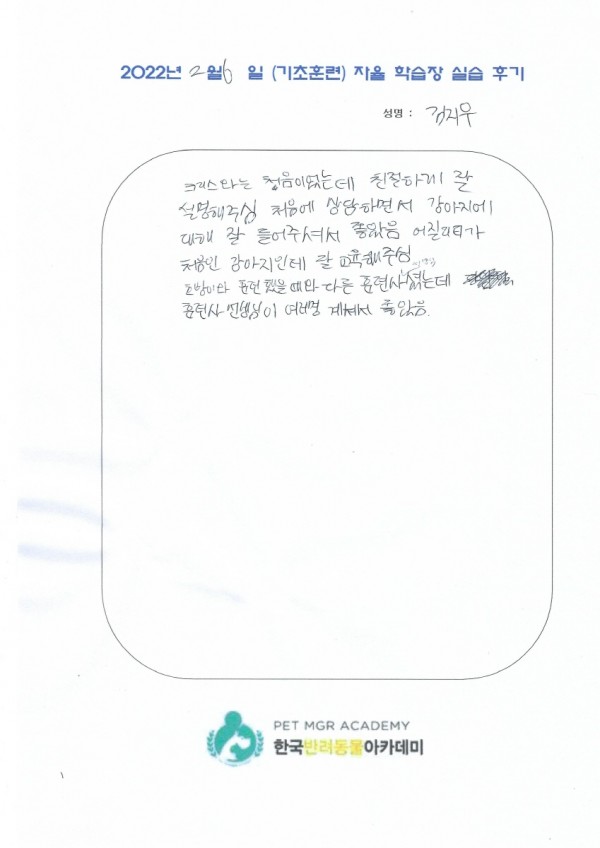 2022년 2월 6일 (기초훈련) 자율 학습장 실습 후기
성명 : 김지우
크리스와는 처음이었는데 친절하게 잘
설명해주심 처음에 상담하면서 강아지에
대해 잘 들어주셔서 좋았음 어질리티가
처음인 강아지인데 잘 교육해주심
훈련 했을 때와 다른 훈련사 는데
훈련사 선생님이 여러명 계셔서 좋았음.
PET MGR ACADEMY
한국반려동물아카데미